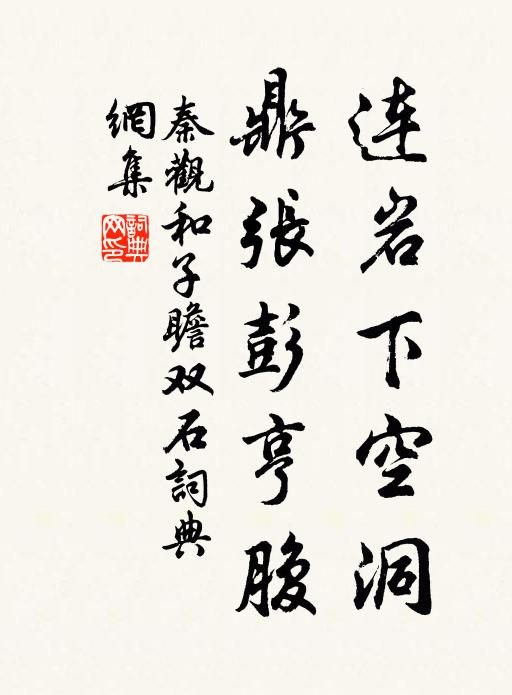 连岩下空洞
鼎張彭亨腹
秦觀和子瞻双石詞典
網集
詞典
网印